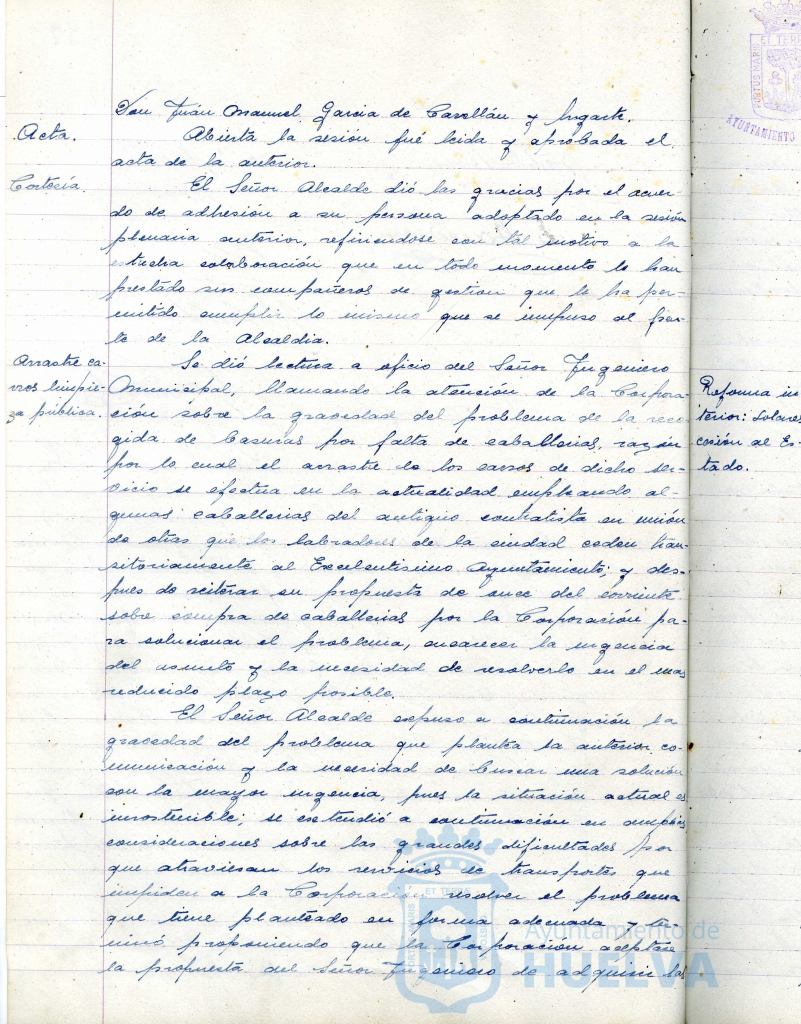 Don Juan Manuel Garcia de Casellán y Ugarte.
Acta.
Abierta la sesión fué leida y aprobada el
acta de la anterior.
Cortesía.
El Señor Alcalde dió las gracias por el acuer-
do de adhesión a su persona adoptado en la sesión
plenaria anterior, refiriendose con tal motivo a la
estrecha colaboración que en todo momento le han
prestado sus compañeros de gestion que le ha per-
mitido cumplir lo mismo que se impuso al fren-
te de la Alcaldia.
Arrastre ca-
rros limpie-
za pública.
Se dió lectura a oficio del Señor Ingeniero
Municipal, llamando la atención de la Corpora-
ción sobre la gravedad del problema de la reco-
gida de basuras por falta de caballerias, razón
por lo cual el arrastre de los carros de dicho ser-
vicio se efectua en la actualidad empleando al-
gunas caballerias del antiguo contratista en unión
de otras que los labradores de la ciudad ceden tran-
sitoriamente al Excelentisimo Ayuntamiento; y des-
pues de reiterar su propuesta de once del corriente
sobre compra de caballerias por la Corporación pa-
ra solucionar el problema, encarecer la urgencia
del asunto y la necesidad de resolverlo en el mas
reducido plazo posible.
El Señor Alcalde expuso a continuación la
gravedad del problema que plantea la anterior co-
municación y la necesidad de buscar una solución
con la mayor urgencia, pues la situación actual es
insostenible; se extendió a continuación en amplias
consideraciones sobre las grandes dificultades por
que atraviesan los servicios de transportes que
impiden a la Corporación resolver el problema
que tiene planteado en forma adecuada y ter-
minó proponiendo que la Corporación aceptase
la propuesta del Señor Ingeniero de adquirir las
Reforma in-
terior: Solares
cesión al Es-
tado.
PORTUS MARIS
ET TERR
AYUNTAMIENTO
Ayuntamiento de
HUELVA